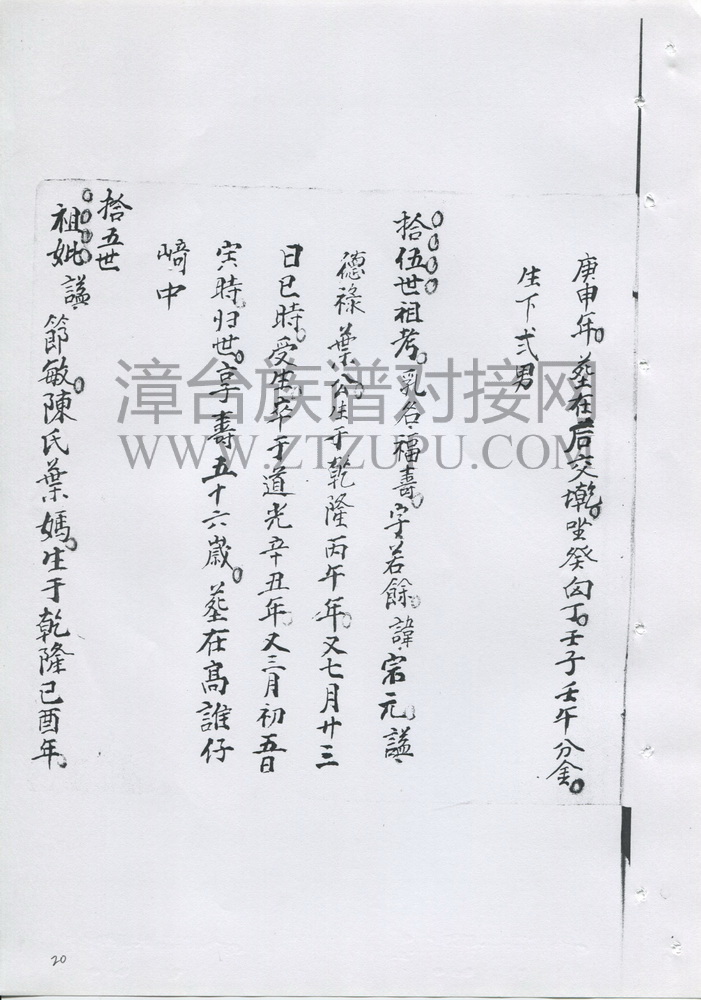 庚申年。葬在后交墘。坐癸向丁。壬子壬午分金。
生下弍男
拾伍世祖考。乳名福壽。字若餘。諱宗元。謚
德祿葉公。生于乾隆丙午年。又七月廿三
日巳時。受生。卒于道光辛丑年。又三月初五日
寅時。归世。享壽五十六歲。葬在高誰仔
崎中
拾五世
祖妣謚節敏。陳氏葉媽。生于乾隆已酉年。
漳台族谱对接网
WWW.ZTZUPU.COM
20